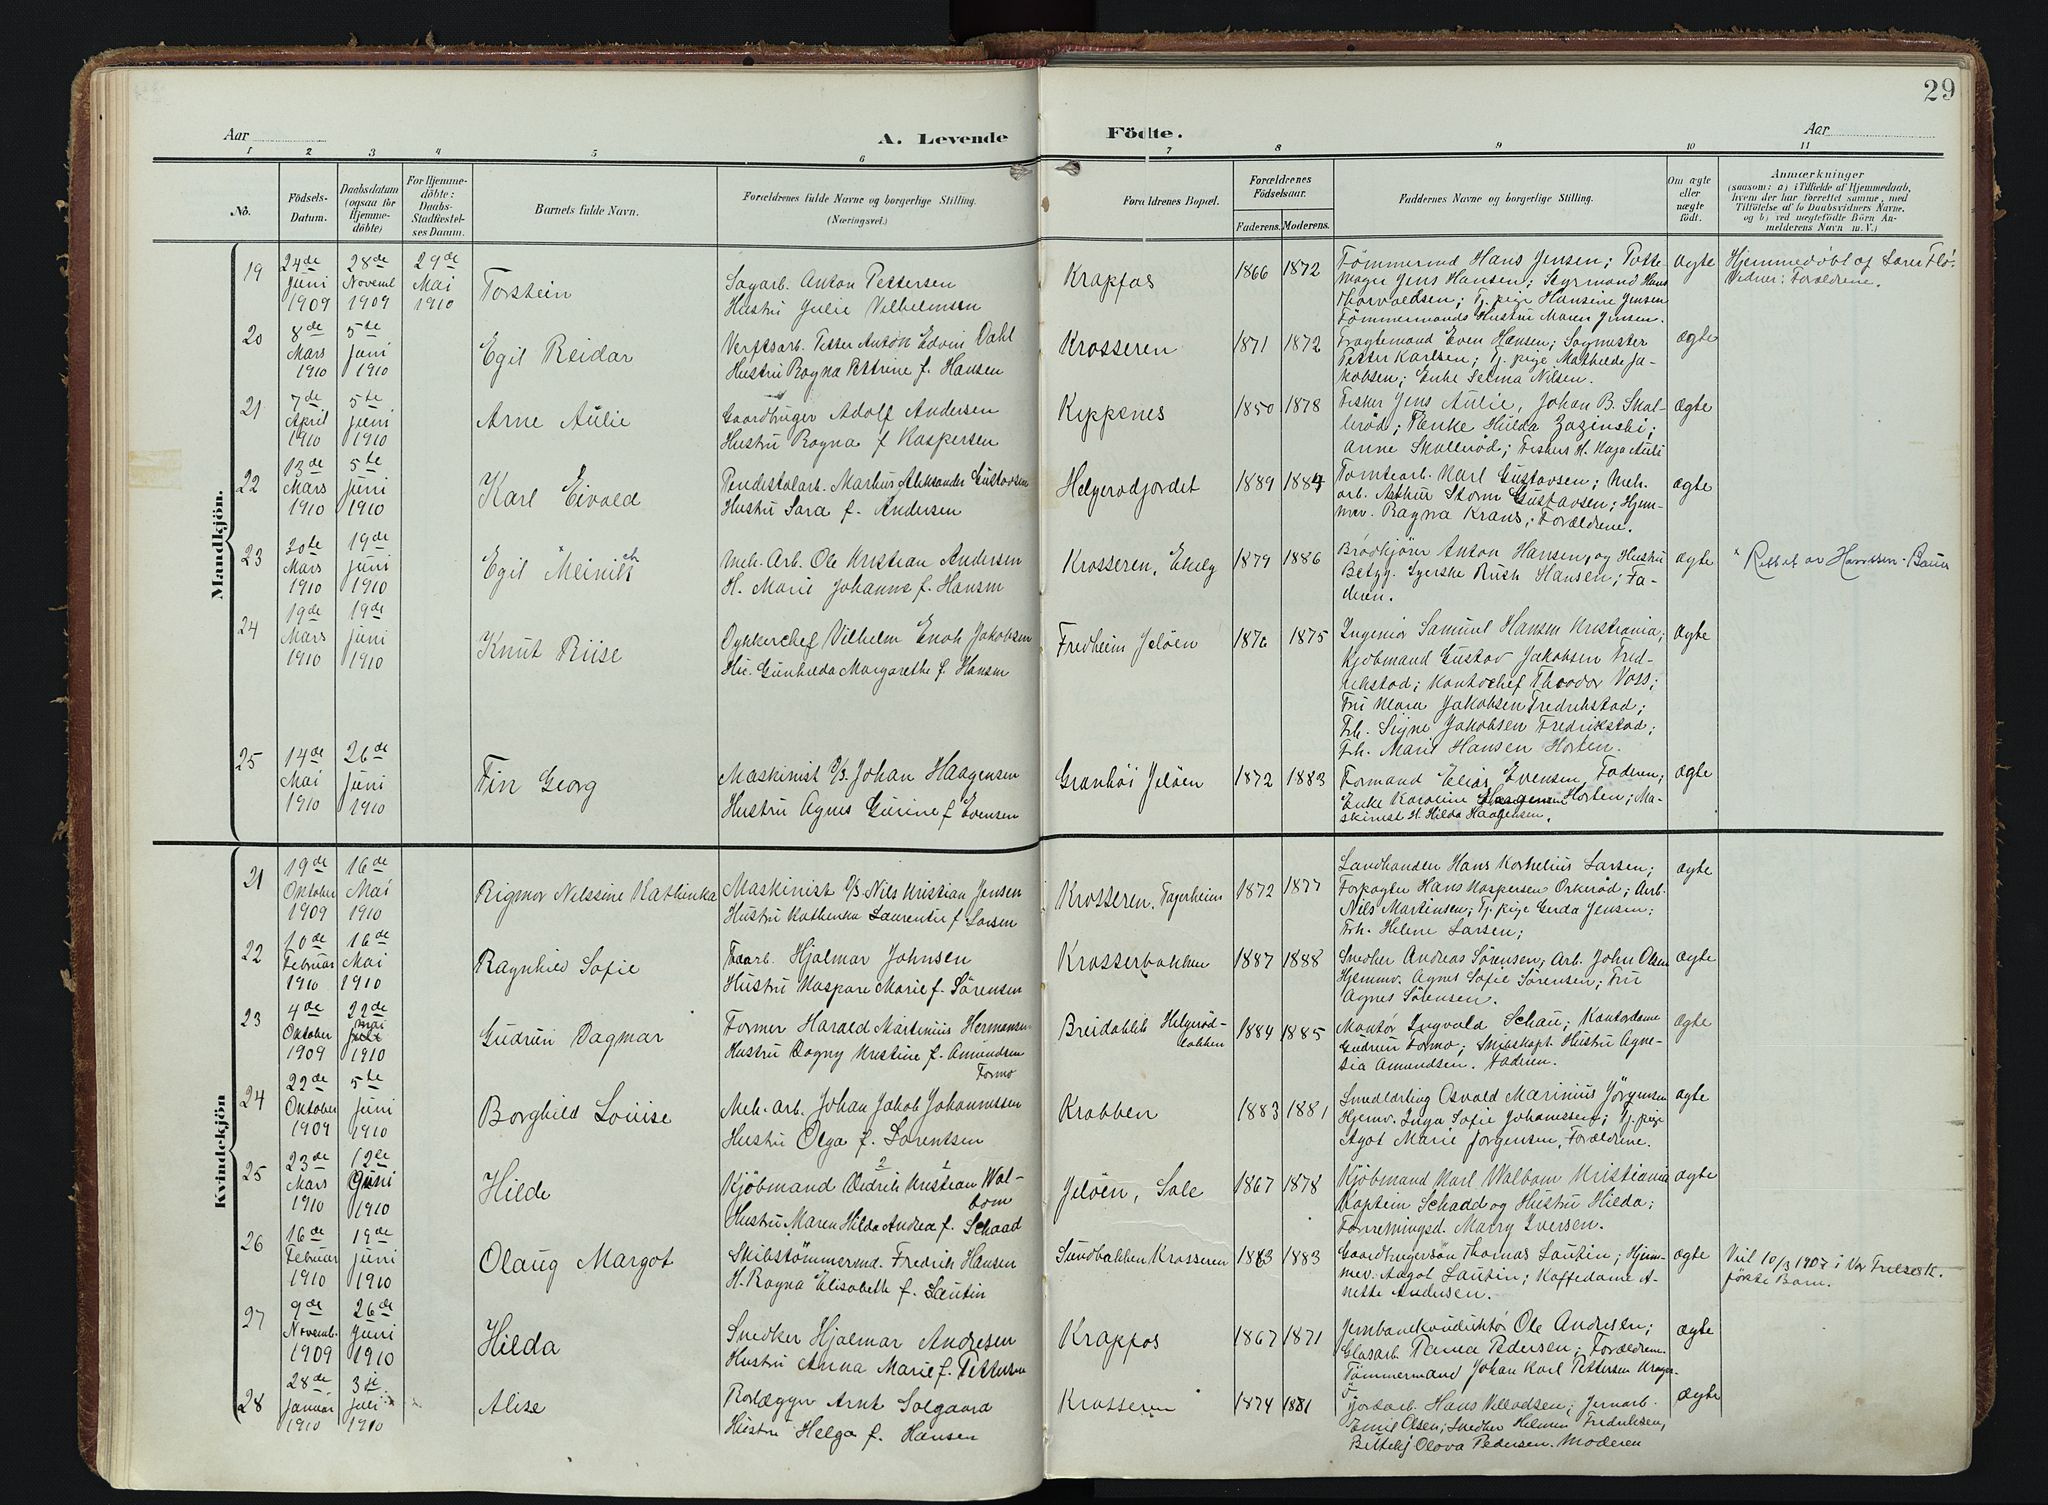 29
Aar
A. Levende
Födte.
Aar
1 2 3 4 5 6 7 8 9 10 11
No.
Födsels-
Datum.
Daabsdatum
(ogsaa for
Hjemme-
döbte)
For Hjemme-
döbte:
Daabs-
Stadfæstel-
ses Datum.
Barnets fulde Navn.
Forældrenes fulde Navne og borgerlige Stilling.
(Næringsvei.)
Forældrenes Bopæl.
Forældrenes
Födselsaar.
Faderens. Moderens.
Faddernes Navne og borgerlige Stilling.
Om ægte
eller
uægte
födt.
Anmærkninger
(saasom: a) i Tilfælde af Hjemmedaab,
hvem der har forrettet samme, med
Tilföielse af to Daabsvidners Navne,
og b) ved uægtefödte Börn An-
melderens Navn m. V.)
Mandkjön.
19
24de
Juni
1909
28de
Novemb
1909
29de
Mai
1910
Torstein
Sagarb. Anton Pettersen
Hustru Julie Vilhelmsen
Krapfos
1866 1872
Tømmermd Hans Jensen; Potte-
mager Jens Hansen; Styrmand Hans
Thorvaldsen; Tj. pige Hansine Jensen
Tømmermands Hustru Maren Jensen.
ægte
Hjemmedøbt af
Vidner: Forældrene.
20
8de
Mars
1910
5te
Juni
1910
Egil Reidar
Verftsarb. Petter Anton Edvin Dahl
Hustru Ragna Petrine f. Hansen
Krosseren
1871 1872
Fragtemand Even Hansen; Sagmester
Petter Karlsen; Tj. pige Mathilde Ja-
kobsen; Enke Selma Nilsen.
ægte
21
7de
April
1910
5te
Juni
1910
Arne Aulie
Gaardbruger Adolf Andersen
Hustru Ragna f. Kaspersen
Kippenes
1850 1878
Fisker Jens Aulie, Johan B. Skal-
lerød; Hilda
Anne Skallerød; Fiskers H. Kaja Auli
ægte
22
13de
Mars
1910
5te
Juni
1910
Karl Eivald
Pendestalarb. Markus Aleksander Gustavsen
Hustru Sara f. Andersen
Helgerødjordet
1889 1884
Tomtearb. Karl Gustavsen; Mek.
arb. Arthur Storm Gustavsen; Hjem-
mev. Ragna Krans; Forældrene.
ægte
23
30te
Mars
1910
19de
Juni
1910
Egil Meinich
Mek. Arb. Ole Kristian Andersen
H. Marie Johanne f. Hansen
Krosseren, Ekely
1879 1886
Brødkjører Anton Hansen, og Hustru
Betzy. Syerske Ruth Hansen; Fa-
deren.
ægte
x Rettet av Hanssen-Bauer
24
19de
Mars
1910
19de
Juni
1910
Knut Riise
Dykkerchef Vilhelm Enok Jakobsen
Hu. Gunhilda Margarethe f. Hansen
Fredheim Jeløen
1876 1875
Ingeniør Samuel Hansen Kristiania;
Kjøbmand Gustav Jakobsen Fred-
rikstad; Kontochef Theodor Voss;
Fru Klara Jakobsen Fredrikstad;
Frk. Signe Jakobsen Fredrikstad;
Frk. Marie Hansen Horten.
ægte
25
14de
Mai
1910
26de
Juni
1910
Fin Georg
Maskinist D/S. Johan Haagensen
Hustru Agnes Gurine f. Evensen
Granhøi Jeløen
1872 1883
Formand Elias Evensen, Faderen;
Enke Karoline Haagensen Horten; Ma-
skinist H. Hilda Haagensen.
ægte
Kvindekjön
21
19de
Oktober
1909
16de
Mai
1910
Rigmor Nilssine Kathinka
Maskinist D/S Nils Kristian Jensen
Hustru Kathinka Laurentse f. Larsen
Krosseren. Fagerheim
1872 1877
Landhandler Hans Kornelius Larsen;
Forpagter Hans Kaspersen Orkerød; Arb.
Nils Martinsen; Tj. pige Gerda Jensen;
Frk. Helene Larsen;
ægte
22
10de
Februar
1910
16de
Mai
1910
Ragnhild Sofie
Hjalmar Johnsen
Hustru Kaspare Marie f. Sørensen
Krosserbakken
1887 1888
Snedker Andreas Sørensen; Arb. John Olsen
Hjemmv. Agnes Sofie Sørensen; Fru
Agnes Sørensen.
ægte
23
4de
Oktober
1909
22de
Mai
1910
Gudrun Dagmar
Former Harald Martinius Hermansen
Hustru Dagny Kristine f. Amundsen
Formo
Breidablik Helgerød-
bakken
1884 1885
Kantor Ingvald Schau; Kontordame
Gudrun Formo; Skibskapt Hustru Agne-
sia Amundsen. Faderen.
ægte
24
22de
Oktober
1909
5te
Juni
1910
Borghild Louise
Mek. arb. Johan Jakob Johannessen
Hustru Olga f. Lorentsen
Krabben
1883 1881
Smedlærling Osvald Marinius Jørgensen
Hjemv. Inga Sofie Johanessen; Tj. pige
Agot Marie Jørgensen, Forældrene.
ægte
25
23de
Mars
1910
12te
Juni
1910
Hilde
Kjøbmand Didrik Kristian Wal-
bom
Hustru Maren Hilda Andrea f. Schaad
Jeløen, Sole
1867 1878
Kjøbmand Karl Walbom Kristiania
Kaptein Schadd og Hustru Hilda;
Forretningsd. Marry Iversen.
ægte
26
16de
Februar
1910
19de
Juni
1910
Olaug Margot
Skibstømmermd. Fredrik Hansen
H. Ragna Elisabeth f. Lautin
Sundbakken Krosseren
1883 1883
Gaardbrugersøn Thomas Lautin; Hjem-
mev. Aagot Lautin; Kaffedame A-
nette Andersen.
ægte
Viet 10/3 1907 i Vor Frelsers K.
første Barn.
27
9de
Novemb.
1909
26de
Juni
1910
Hilda
Snedker Hjalmar Andresen
Hustru Anna Marie f. Pettersen
Krapfos
1867 1871
Jernbanekonduktør Ole Andresen;
Glasarb. Pedersen; Forældrene
Tømmermand Johan Karl Pettersen
ægte
28
28de
Januar
1910
3je
Juli
1910
Alise
Rørlægger Arnt Solgaard
Hustru Helga f. Hansen
Krosseren
1874 1881
Jordarb. Hans Villadsen; Jernarb.
Emil Olsen; Snedker Helmin Fredriksen,
Olava Pedersen. Moderen
ægte